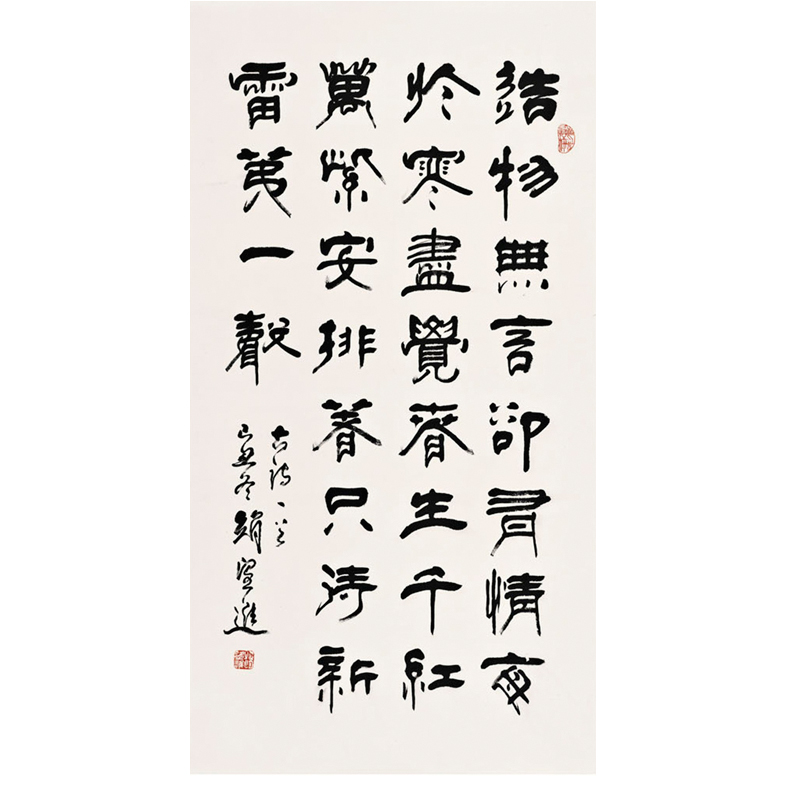 造物無言卻有情每
於寒盡覺春生千紅
萬紫安排著只待新
雷第一聲
古詩一首
丑冬 進